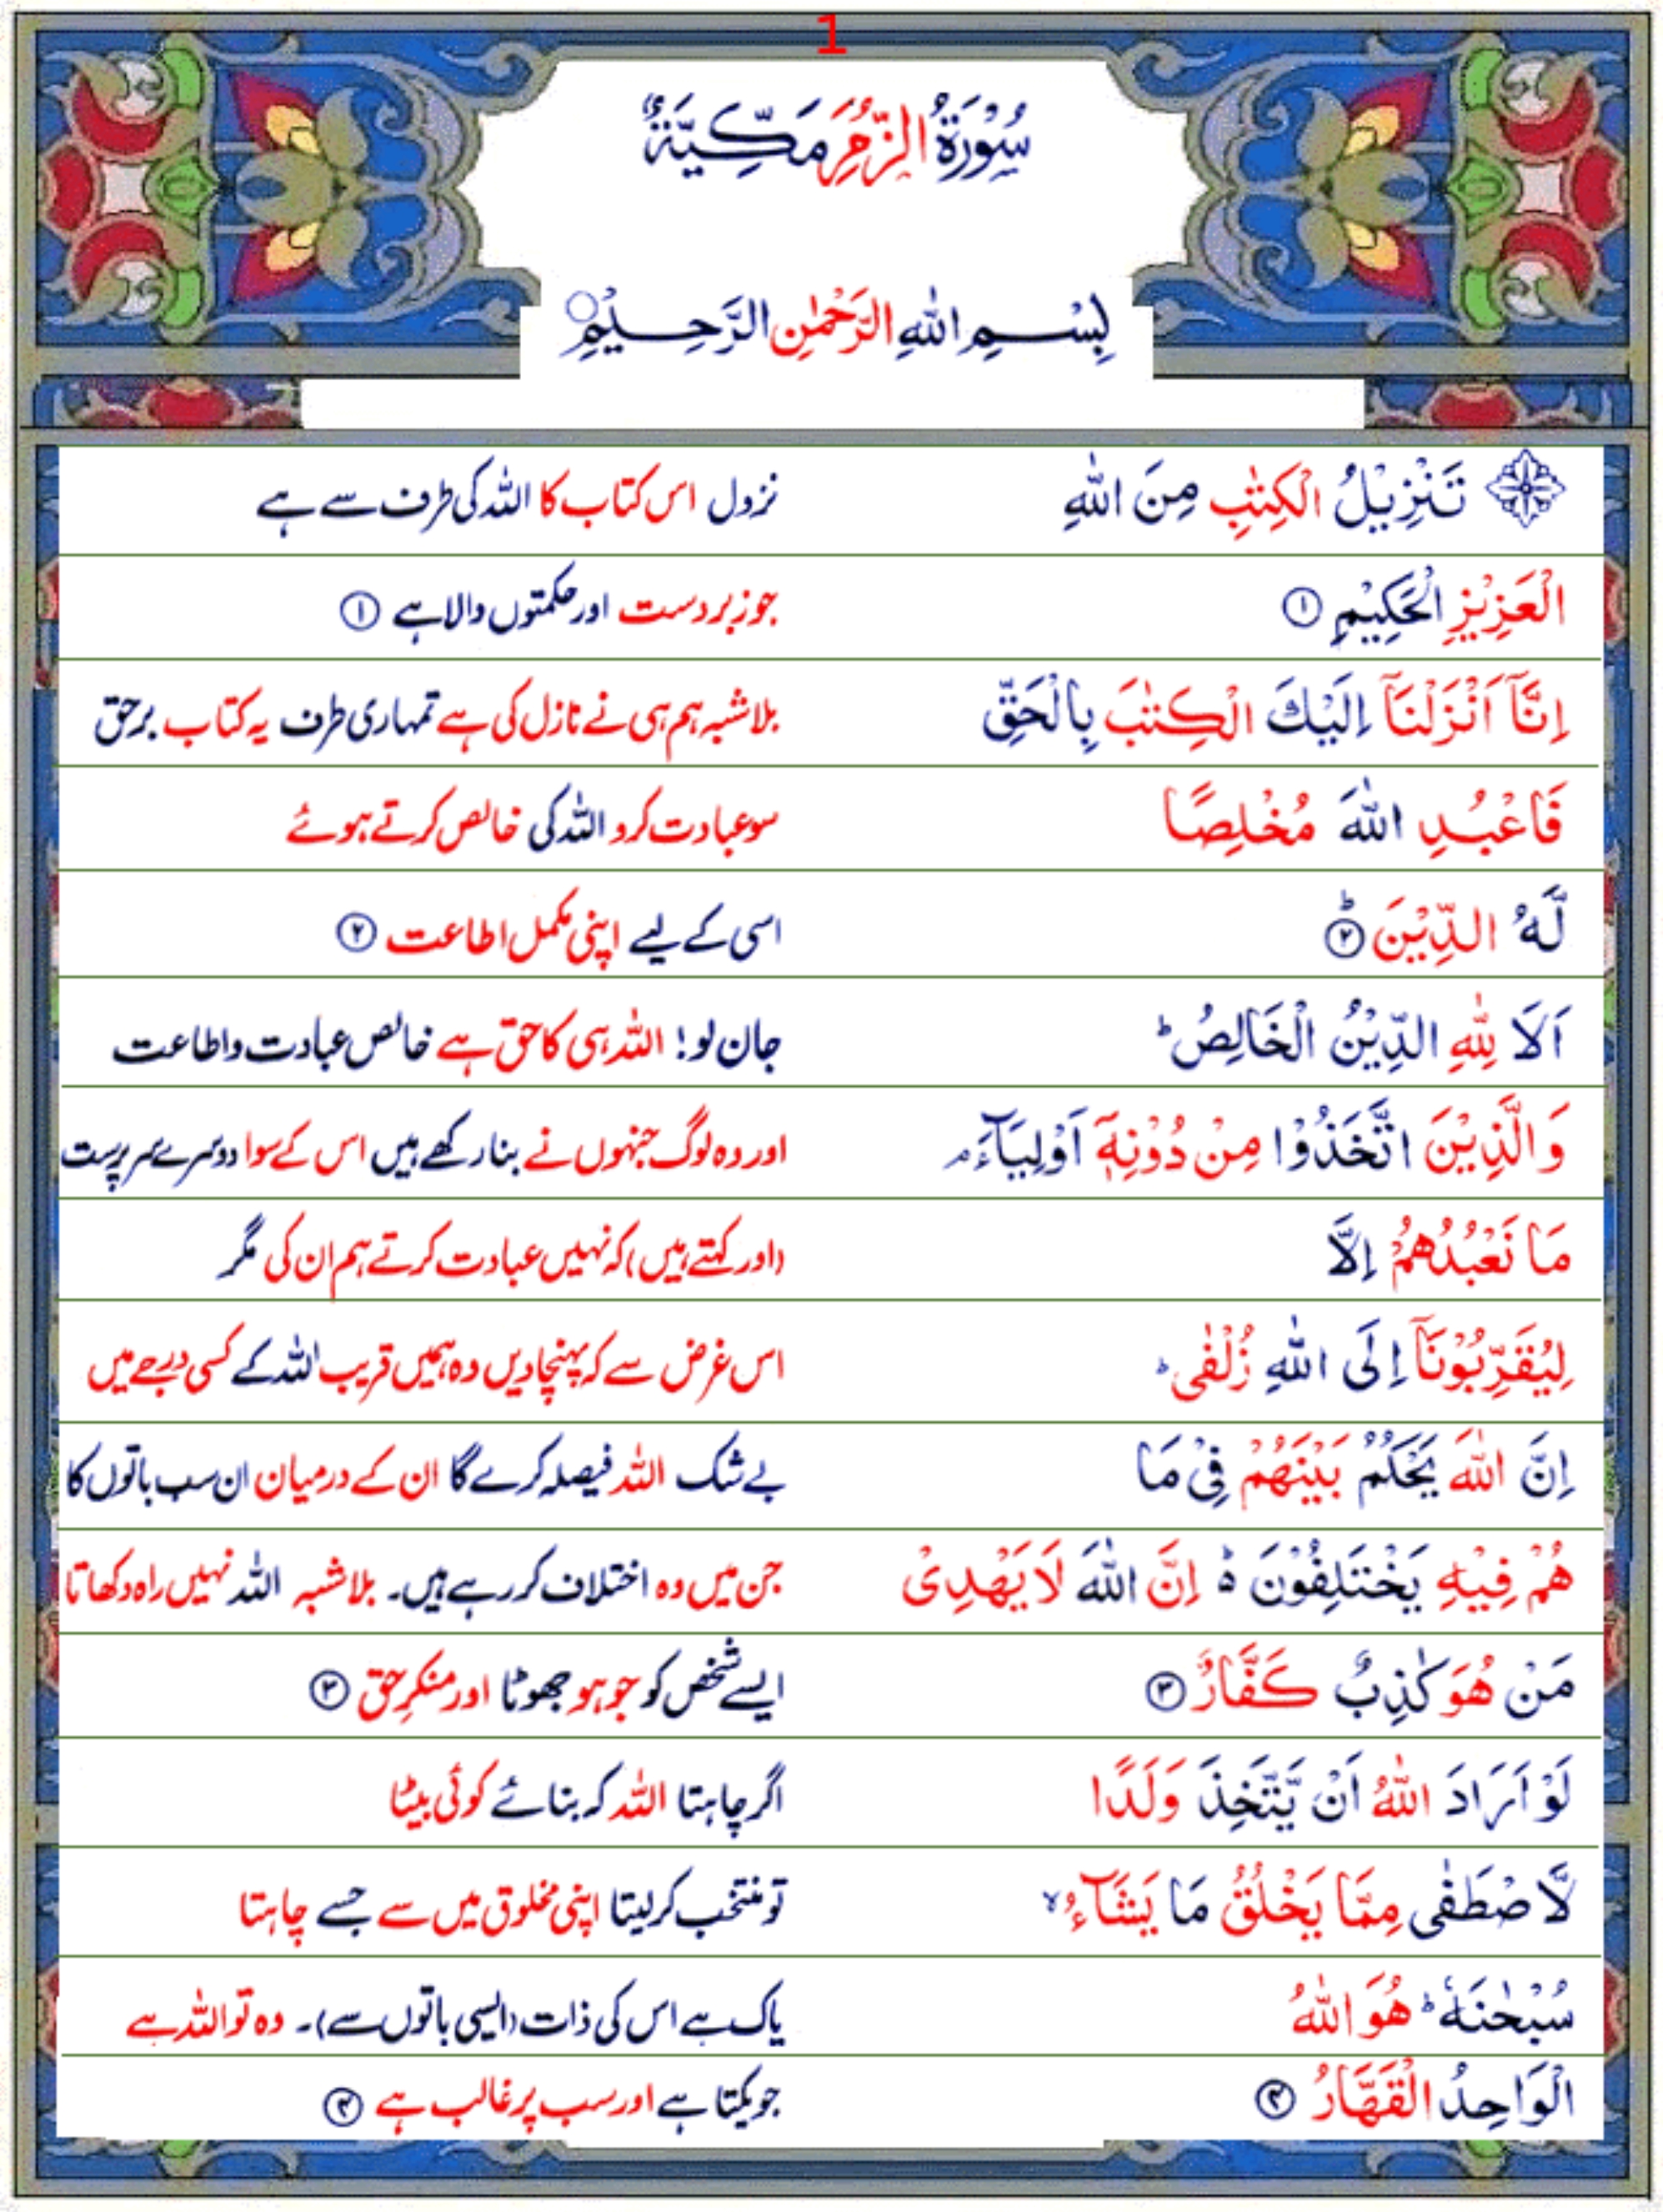 1
سُوْرَةُ الزُّمَرِ مَكِّيَّةٌ
بِسْمِ اللّٰهِ الرَّحْمٰنِ الرَّحِيْمِ
تَنْزِيْلُ الْكِتٰبِ مِنَ اللّٰهِ نزول اس کتاب کا اللہ کی طرف سے ہے
الْعَزِيْزِ الْحَكِيْمِ ① جو زبردست اور حکمتوں والا ہے ①
اِنَّاۤ اَنْزَلْنَاۤ اِلَيْكَ الْكِتٰبَ بِالْحَقِّ بلاشبہ ہم ہی نے نازل کی ہے تمہاری طرف یہ کتاب برحق
فَاعْبُدِ اللّٰهَ مُخْلِصًا سو عبادت کرو اللہ کی خالص کرتے ہوئے
لَّهُ الدِّيْنَ ؕ② اسی کے لیے اپنی مکمل اطاعت ②
اَلَا لِلّٰهِ الدِّيْنُ الْخَالِصُ ؕ جان لو! اللہ ہی کا حق ہے خالص عبادت و اطاعت
وَالَّذِيْنَ اتَّخَذُوْا مِنْ دُوْنِهٖۤ اَوْلِيَآءَ ۘ اور وہ لوگ جنہوں نے بنا رکھے ہیں اس کے سوا دوسرے سرپرست
مَا نَعْبُدُهُمْ اِلَّا (اور کہتے ہیں) کہ نہیں عبادت کرتے ہم ان کی مگر
لِيُقَرِّبُوْنَاۤ اِلَى اللّٰهِ زُلْفٰى ؕ اس غرض سے کہ پہنچادیں وہ ہمیں قریب اللہ کے کسی درجے میں
اِنَّ اللّٰهَ يَحْكُمُ بَيْنَهُمْ فِيْ مَا بے شک اللہ فیصلہ کرے گا ان کے درمیان ان سب باتوں کا
هُمْ فِيْهِ يَخْتَلِفُوْنَ ؕ۬ اِنَّ اللّٰهَ لَا يَهْدِيْ جن میں وہ اختلاف کر رہے ہیں۔ بلاشبہ اللہ نہیں راہ دکھاتا
مَنْ هُوَ كٰذِبٌ كَفَّارٌ ③ ایسے شخص کو جو ہو جھوٹا اور منکرِ حق ③
لَوْ اَرَادَ اللّٰهُ اَنْ يَّتَّخِذَ وَلَدًا اگر چاہتا اللہ کہ بنائے کوئی بیٹا
لَّاصْطَفٰى مِمَّا يَخْلُقُ مَا يَشَآءُ ۙ تو منتخب کرلیتا اپنی مخلوق میں سے جسے چاہتا
سُبْحٰنَهٗ ؕ هُوَ اللّٰهُ پاک ہے اس کی ذات (ایسی باتوں سے)۔ وہ تو اللہ ہے
الْوَاحِدُ الْقَهَّارُ ④ جو یکتا ہے اور سب پر غالب ہے ④